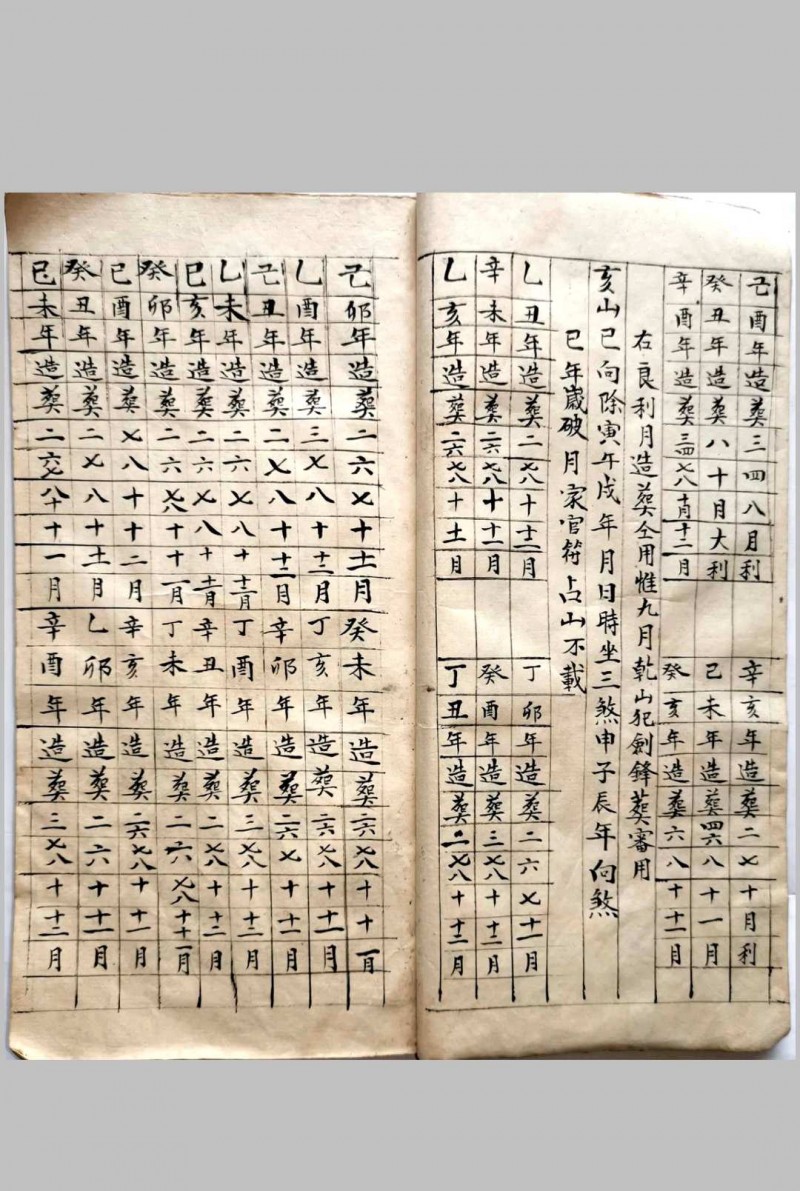 己酉年造葬三四八月利
辛亥年造葬二七十月利
癸丑年造葬八十月大利
己未年造葬四六八十一月
辛酉年造葬三四七八十月十二月
癸亥年造葬六八十十一月
右良利月造葬仝用惟九月乾山犯劍鋒葬審用
亥山巳向除寅午戌年月日時坐三煞申子辰年向煞
巳年歲破月家官符占山不載
乙丑年造葬二七八十十二月
丁卯年造葬二六七十一月
辛未年造葬二六七八十十一月
癸酉年造葬三七八十十二月
乙亥年造葬二六七八十十一月
丁丑年造葬二七八十十二月
己卯年造葬二六七十十一月
癸未年造葬二六七八十十一月
乙酉年造葬三七八十十二月
丁亥年造葬二六七八十十一月
己丑年造葬二七八十十二月
辛卯年造葬二六七十十一月
乙未年造葬二六七八十十一月
丁酉年造葬三七八十十二月
己亥年造葬二六七八十十一月
辛丑年造葬二七八十十二月
癸卯年造葬二六七八十十一月
丁未年造葬二六七八十十一月
己酉年造葬七八十十二月
辛亥年造葬二六七八十十一月
癸丑年造葬二七八十十一月
乙卯年造葬二六十十一月
己未年造葬二六七八十十一月
辛酉年造葬三七八十十二月